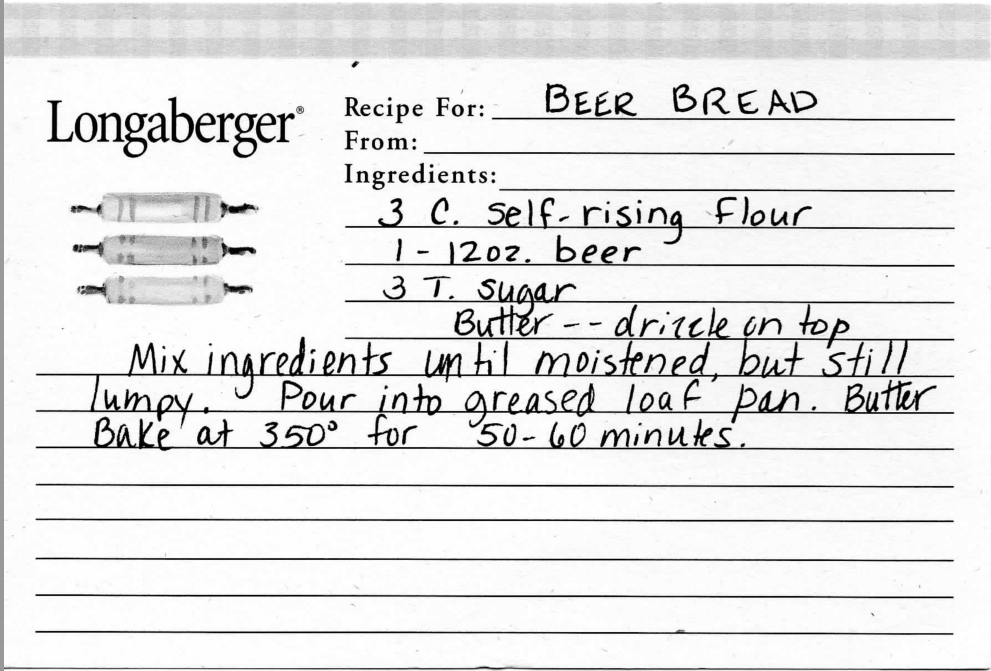 Longaberger®
Recipe For: BEER BREAD
From:
Ingredients:
3 C. self-rising flour
1 - 12oz. beer
3 T. sugar
Butter -- drizzle on top
Mix ingredients until moistened, but still
lumpy. Pour into greased loaf pan. Butter
Bake at 350° for 50-60 minutes.